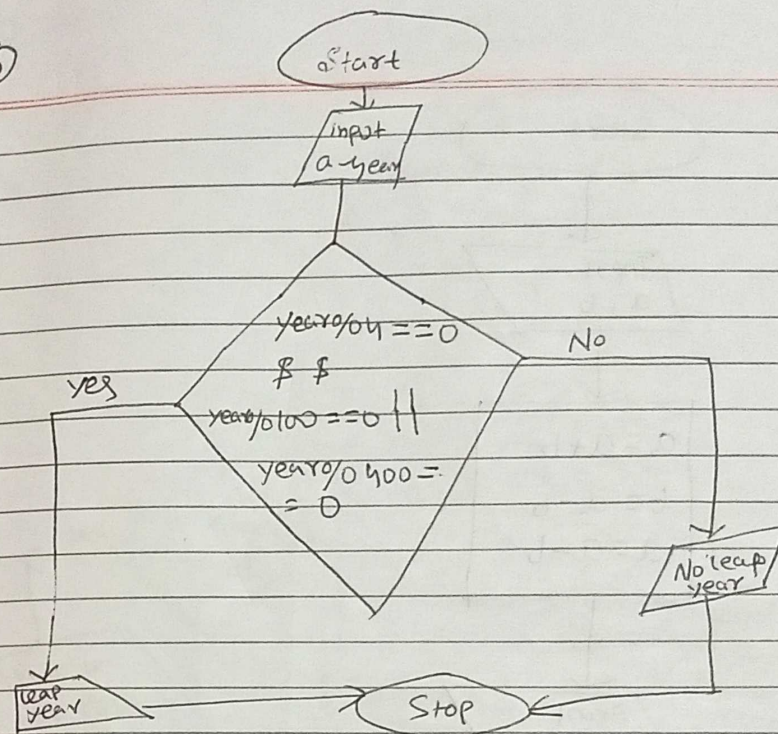 Start
input
a year
year%4==0
$ $
year%100==0 ||
year%400=
=0
yes
No
No leap
year
leap
year
Stop